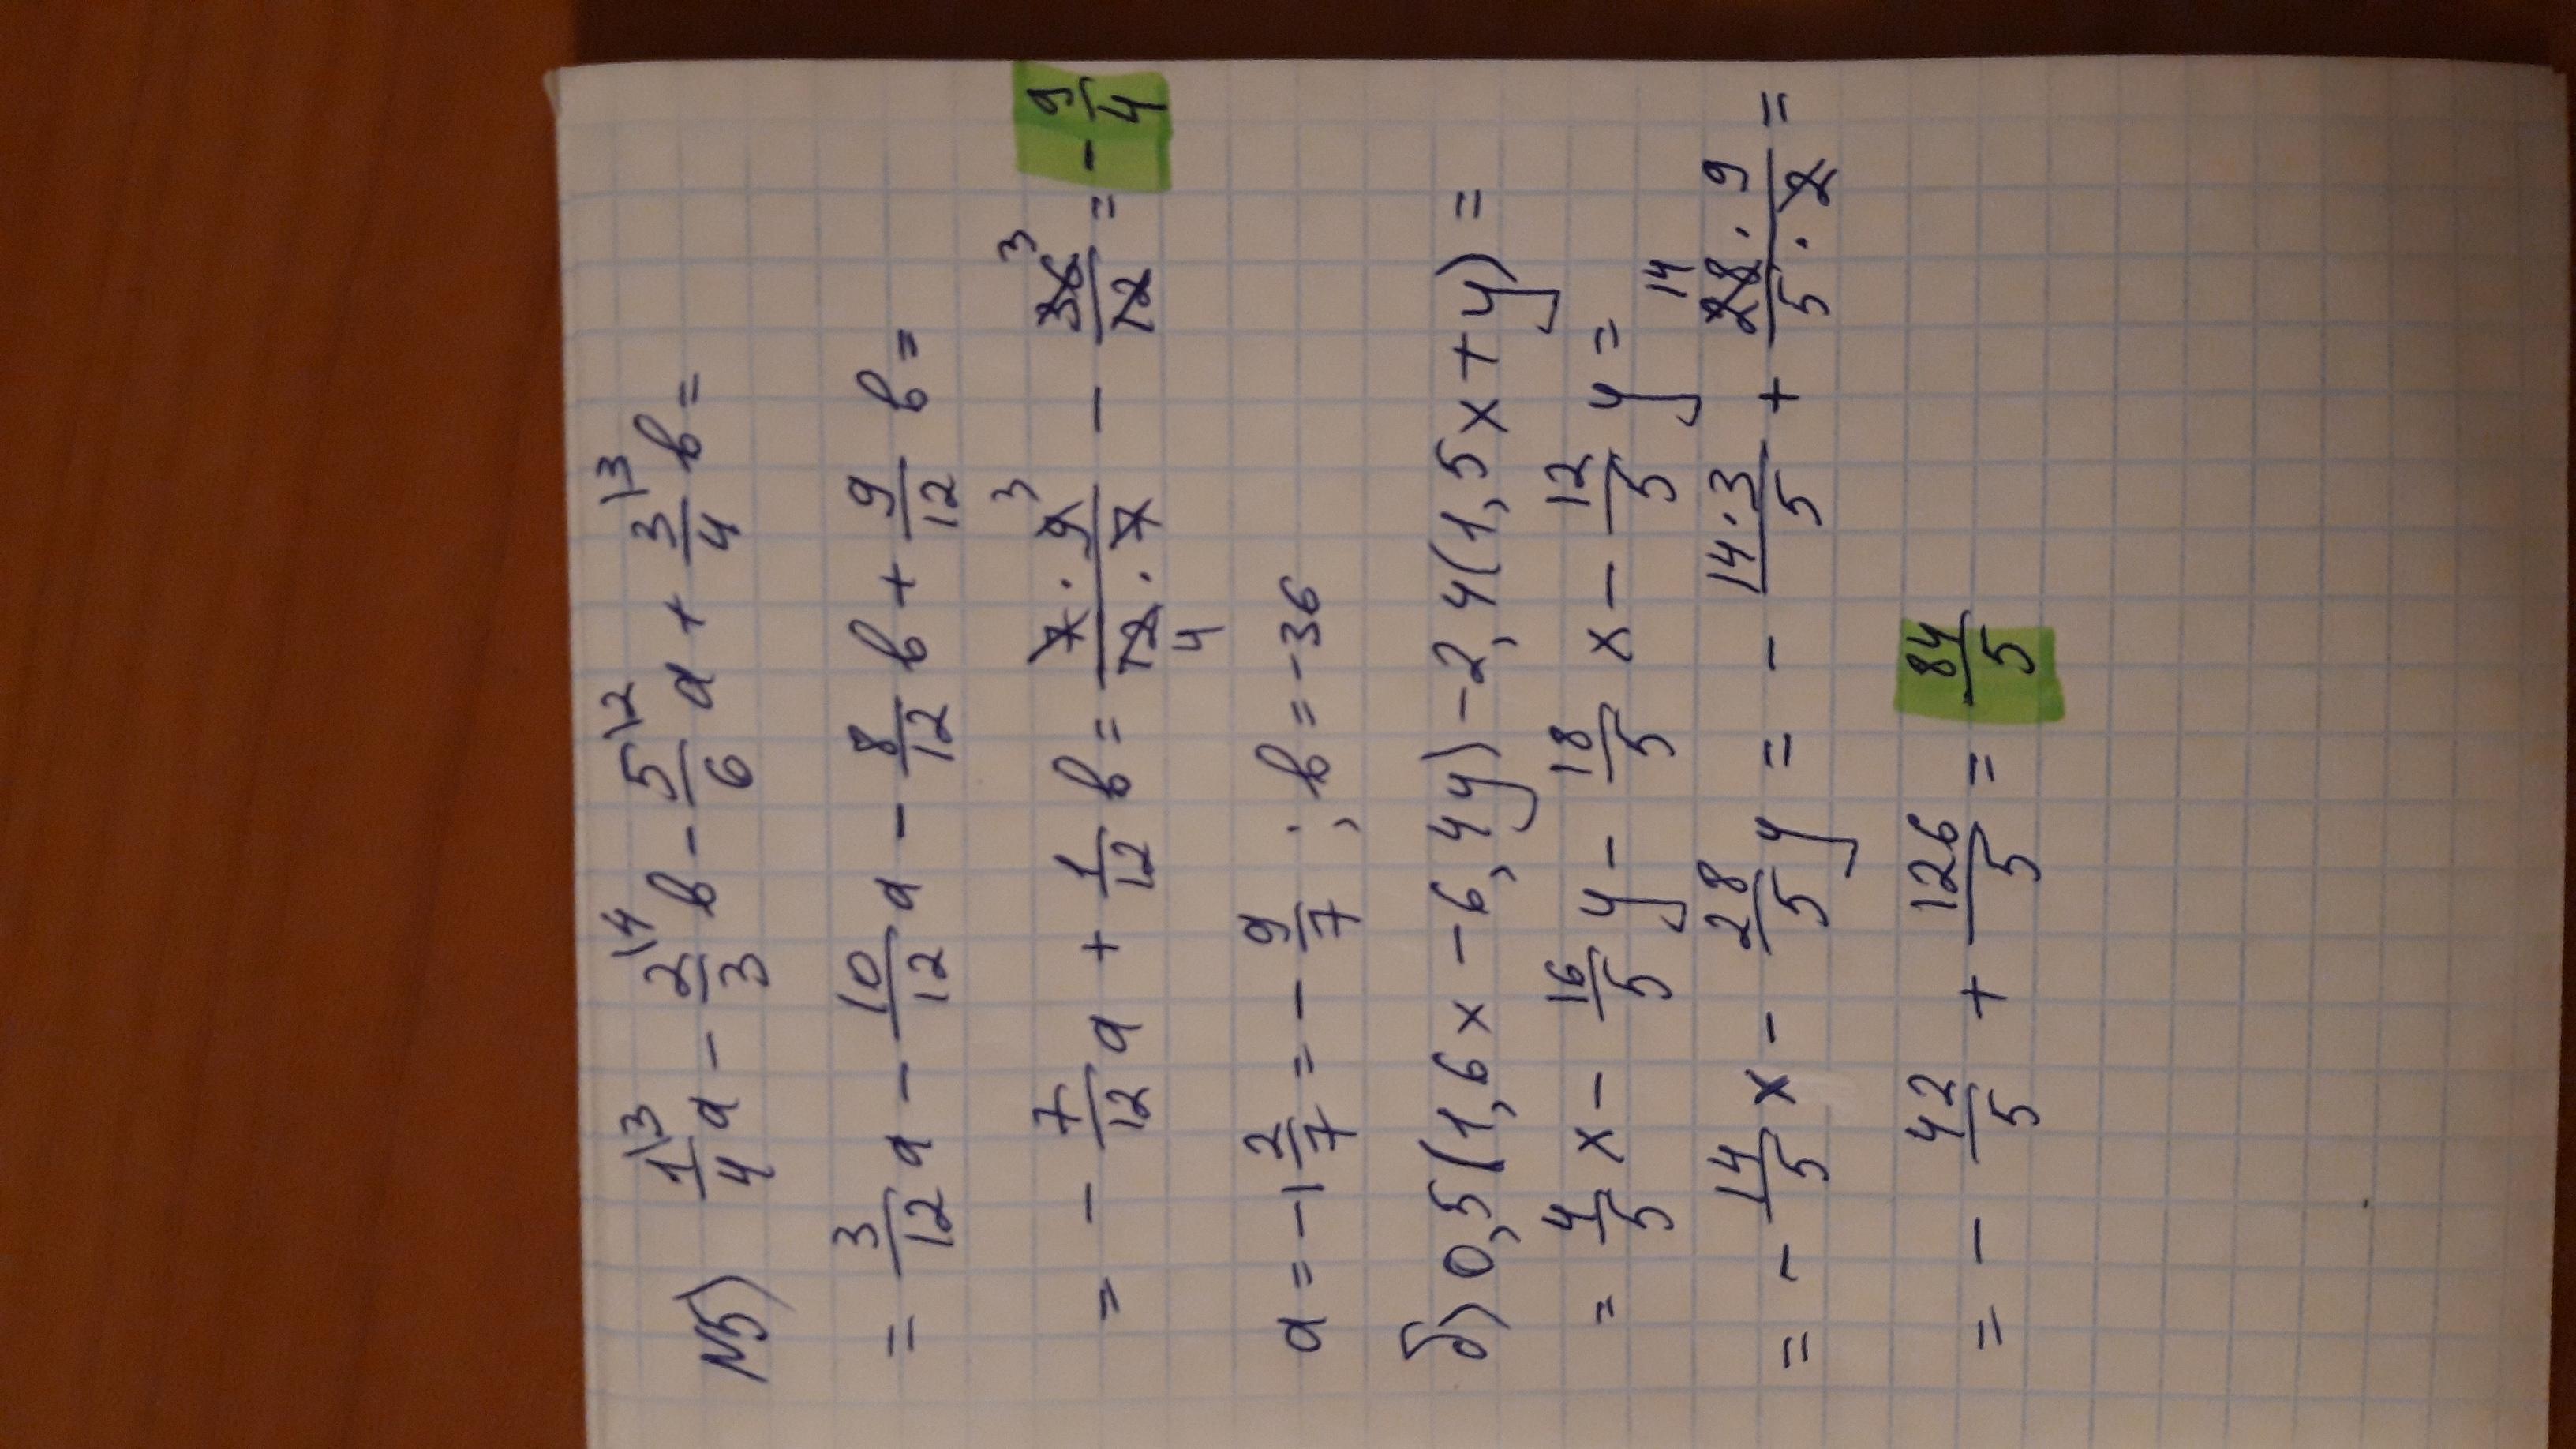 №5) 1/4\3 a - 2/3\4 b - 5/6\2 a + 3/4\3 b =
= 3/12 a - 10/12 a - 8/12 b + 9/12 b =
= - 7/12 a + 1/12 b = 7·9 3/12·7 4 - 36 3/12 = - 9/4
a = -1 2/7 = - 9/7 ; b = -36
б) 0,5(1,6x - 6,4y) - 2,4(1,5x + y) =
= 4/5 x - 16/5 y - 18/5 x - 12/5 y =
= - 14/5 x - 28/5 y = - 14·3/5 + 14 28·9/5·2 =
= - 42/5 + 126/5 = 84/5